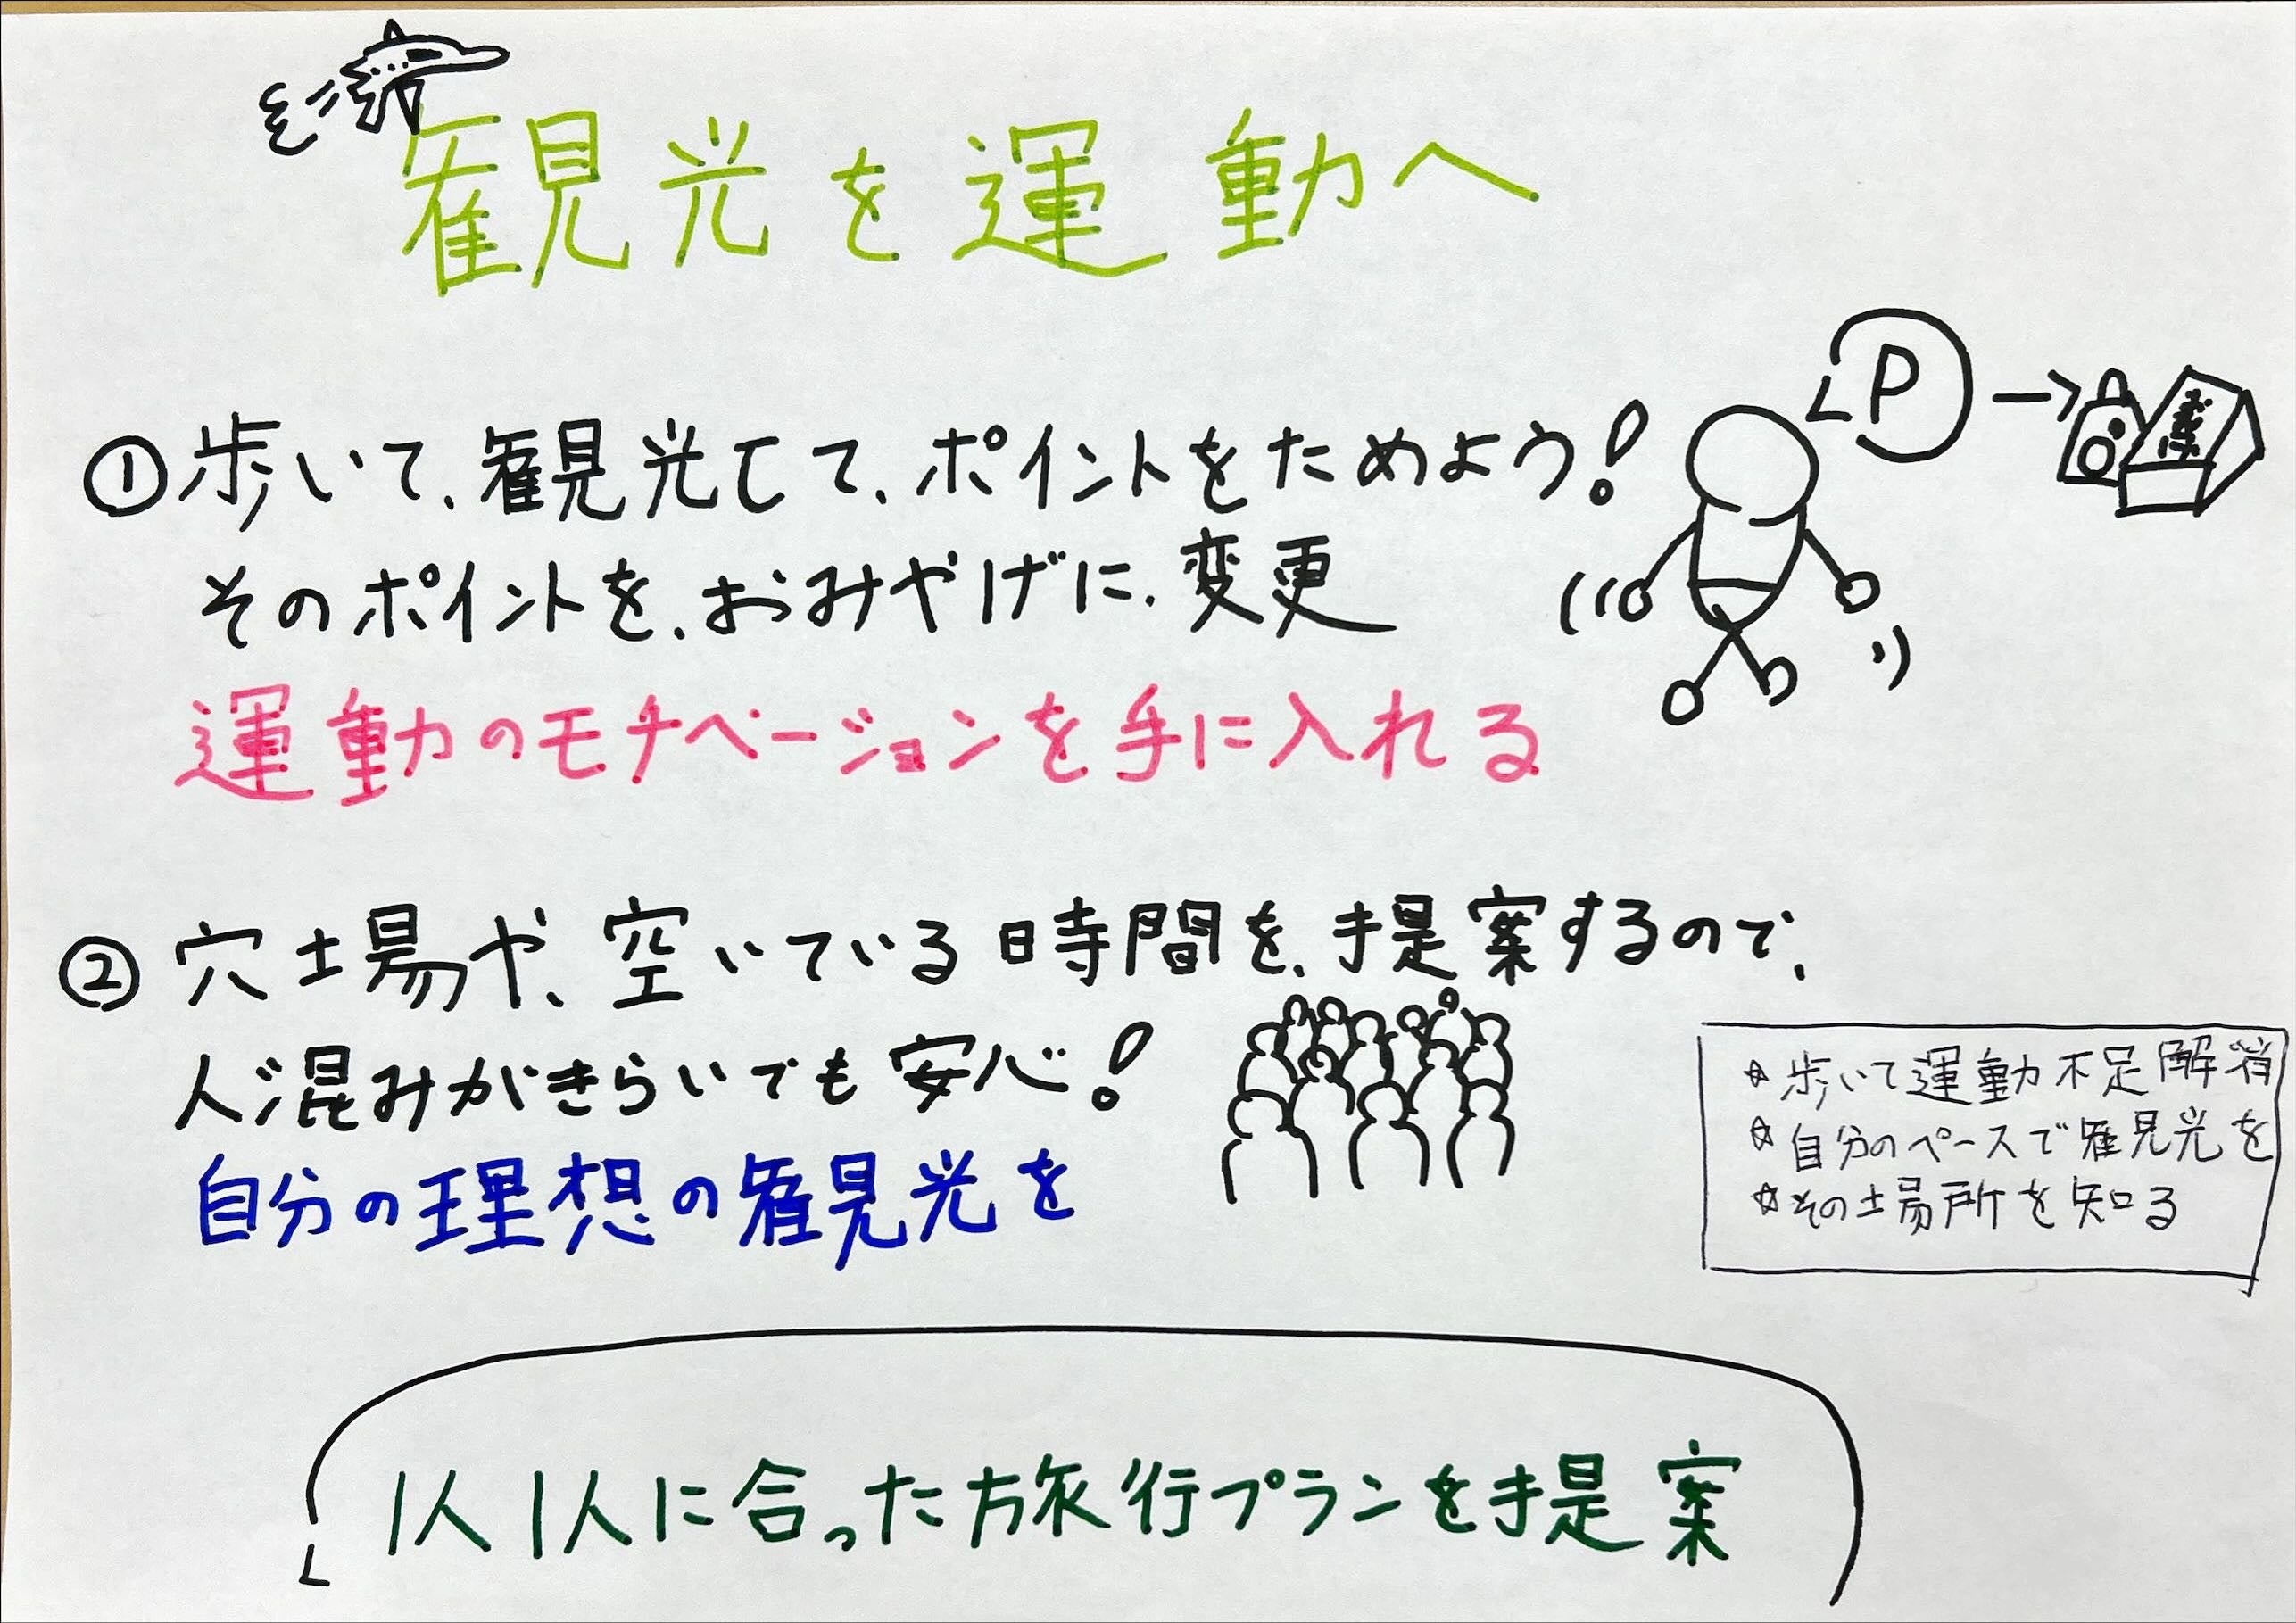 観光を運動へ
P
①歩いて、観光して、ポイントをためよう!
そのポイントを、おみやげに、変更
運動のモチベーションを手に入れる
②穴場や、空いている時間を、提案するので、
人混みがきらいでも安心!
自分の理想の観光を
☆歩いて運動不足解消
☆自分のペースで観光を
☆その場所を知る
1人1人に合った旅行プランを提案